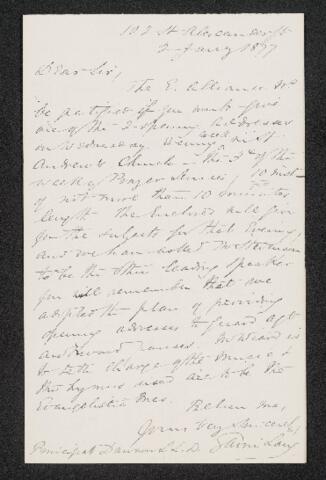 102 St Alexander St
2 Jany 1877
Dear Sir,
The E. Alliance
be gratified if you would give
one of the 2 opening addresses
on Wednesday Evening in St
Andrew's Church - the 3d of the
week of Prayer Services, 10 inst -
of not more than 10 minutes
length the enclosed will give
you the subjects for that Evening,
and we have asked
to be the other leading speaker
you will remember that we
adopted the plan of providing
opening addresses to guard agt
pauses.
to take charge of the music &
the hymns used are to be the
Evangelistic ones.
Believe me,
yours very sincerely,
Principal Dawson L.L.D.